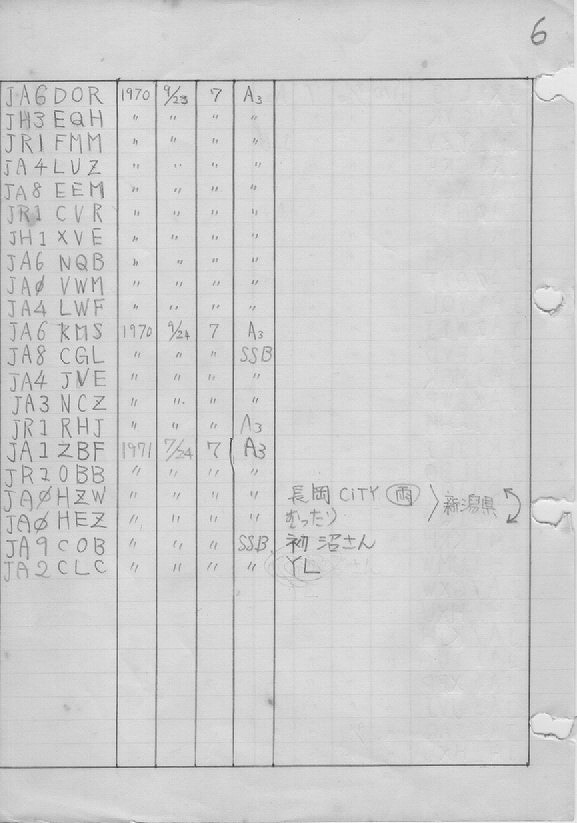 6
JA6DOR 1970 9/23 7 A3
JH3EQH " " " "
JR1FMM " " " "
JA4LUZ " " " "
JA8EEM " " " "
JR1CVR " " " "
JH1XVE " " " "
JA6NQB " " " "
JAØVWM " " " "
JA4LWF " " " "
JA6KMS 1970 9/24 7 A3
JA8CGL " " " SSB
JA4JVE " " " "
JA3NCZ " " " "
JR1RHJ " " " A3
JA1ZBF 1971 7/24 7 A3
JR2OBB " " " "
JAØHZW " " " " 長岡CITY 雨 新潟県
JAØHEZ " " " "
JA9COB " " " SSB 初沼さん
JA2CLC " " " " YL